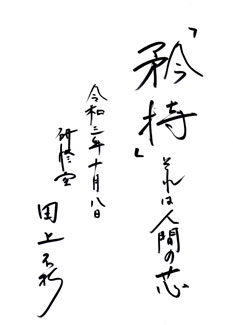 「矜持」
それは人間の芯
令和三年十月八日
研修室
田上